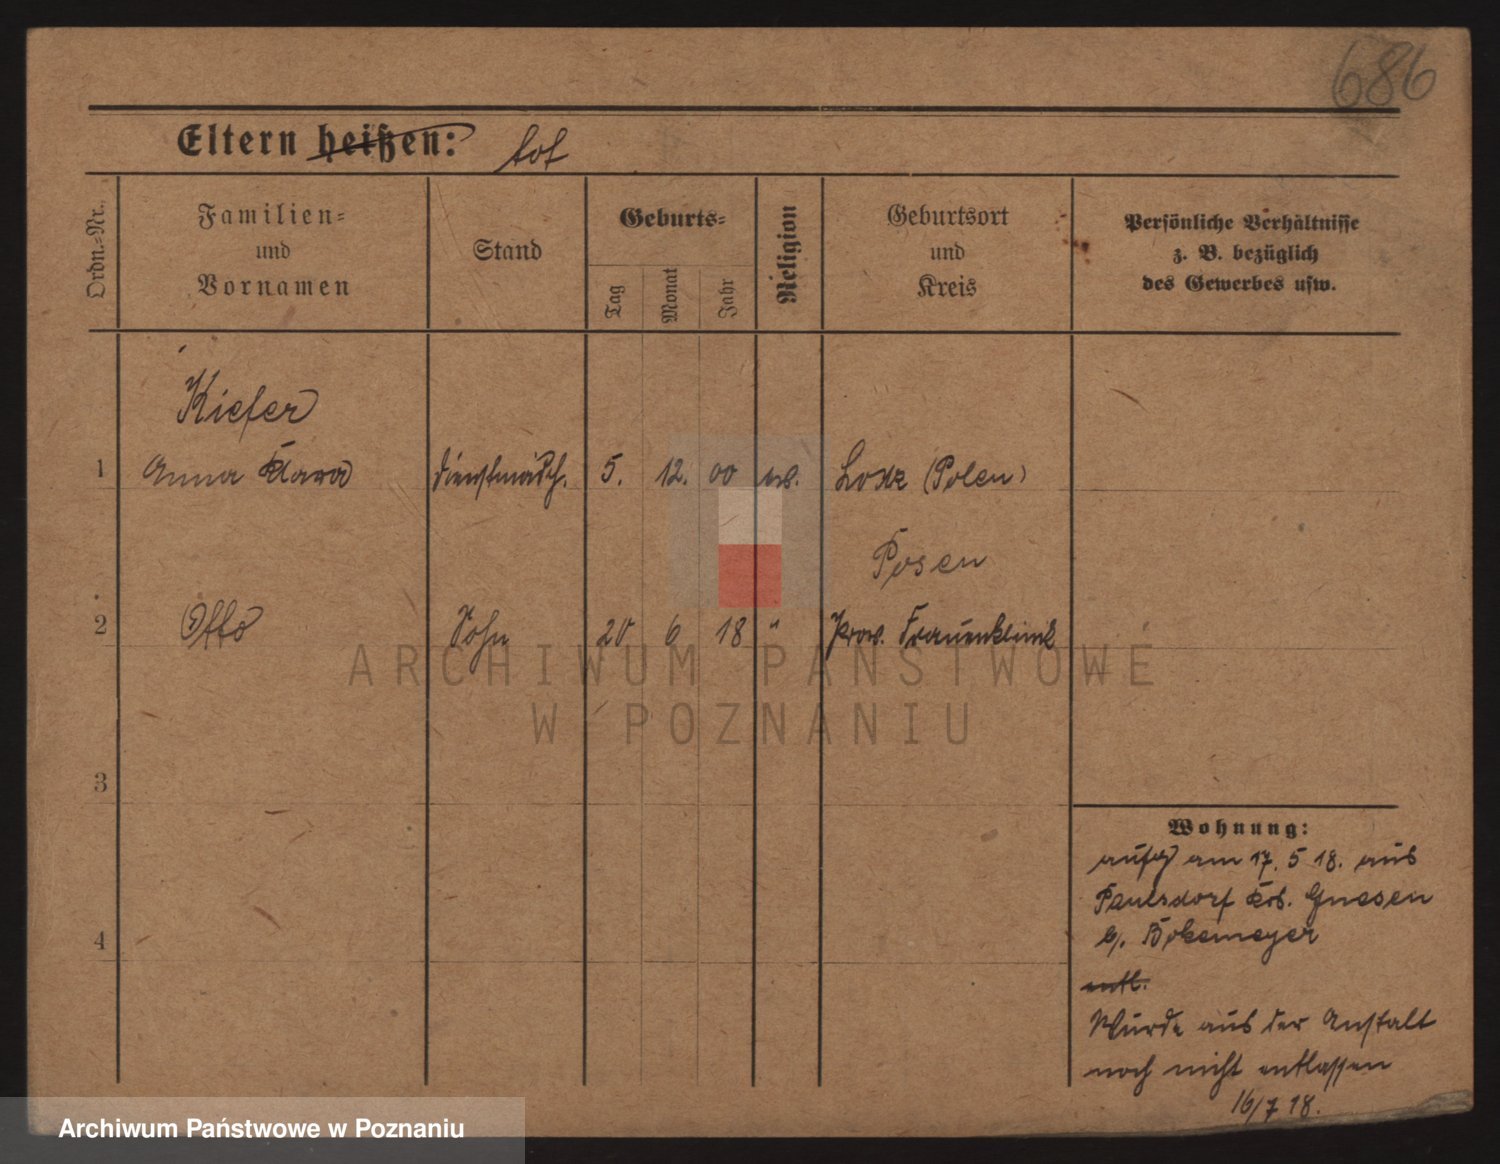 686
Eltern heißen: tot
Ordn.=Nr.
Familien=
und
Vornamen
Stand
Geburts=
Tag
Monat
Jahr
Religion
Geburtsort
und
Kreis
Persönliche Verhältnisse
z. B. bezüglich
des Gewerbes usw.
Kiefer
1 Anna Klara Dienstmädch. 5. 12. 00 ev. Lodz (Polen)
Posen
2 Otto Sohn 20 6 18 " Prov. Frauenklinik
ARCHIWUM PAŃSTWOWE
W POZNANIU
3
Wohnung:
aufg am 17. 5 18. aus
Paulsdorf Krs. Gnesen
b/. Bokemeyer
4
entl.
Wurde aus der Anstalt
noch nicht entlassen
16/7 18.
Archiwum Państwowe w Poznaniu